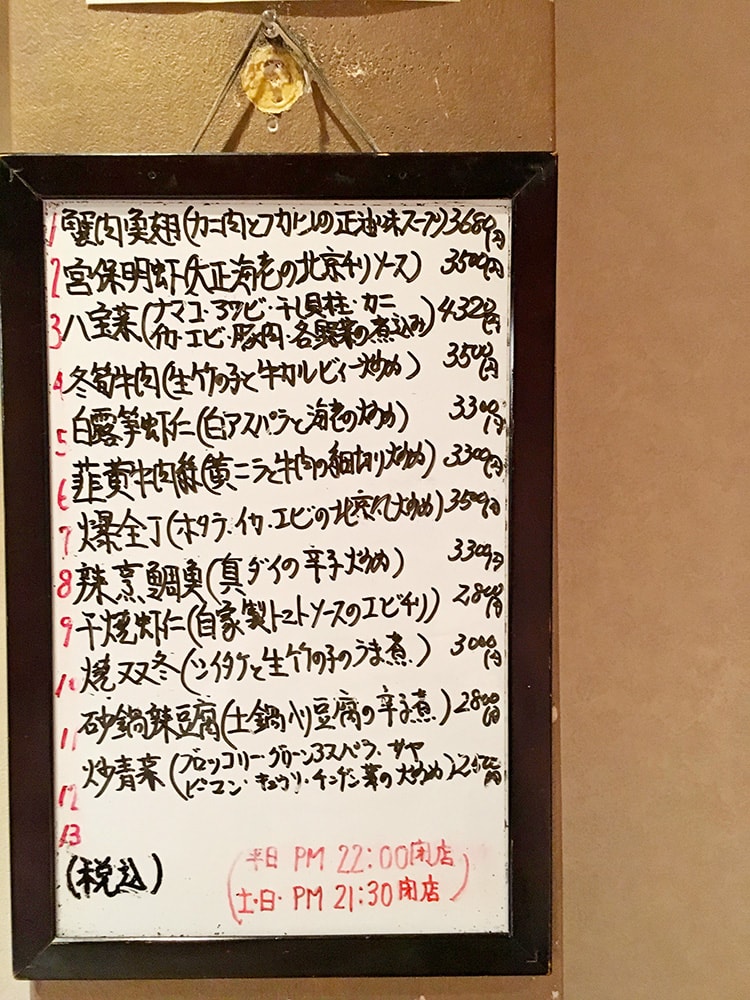 1 蟹肉魚翅(カニ肉とフカヒレの正油味スープ)3680円
2 宮保明虾(大正海老の北京チリソース) 3500円
3 八宝菜(ナマコ・アワビ・干し貝柱・カニ
イカ・エビ・豚肉・各野菜の煮込み) 4320円
4 冬筍牛肉(生竹の子と牛カルビィー炒め) 3500円
5 白露笋虾仁(白アスパラと海老の炒め) 3300円
6 韮黄牛肉絲(黄ニラと牛肉の細切り炒め) 3300円
7 爆全丁(ホタテ・イカ・エビの北京風炒め) 3500円
8 辣烹鯛魚(真ダイの辛子炒め) 3300円
9 干焼虾仁(自家製トマトソースのエビチリ) 2800円
10 焼双冬(シイタケと生竹の子のうま煮) 3000円
11 砂鍋辣豆腐(土鍋入り豆腐の辛子煮) 2800円
12 炒青菜(ブロッコリー・グリーンアスパラ・サヤ
ピーマン・キュウリ・チンゲン菜の炒め)
13
(税込)
(平日 PM 22:00閉店
土・日・PM 21:30閉店)